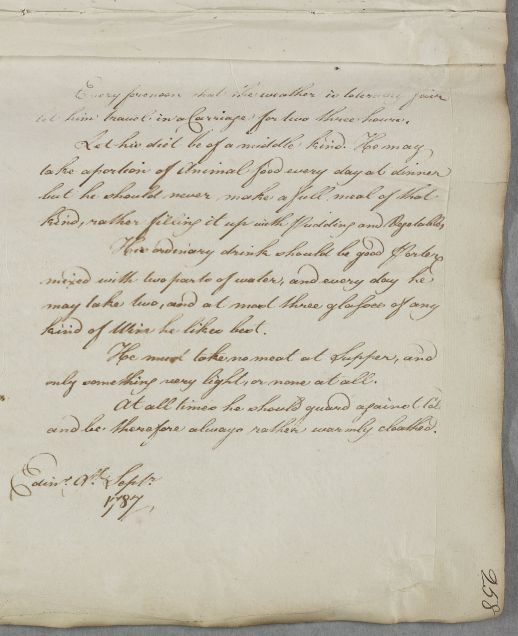 Every forenoon that the weather is tolerably fair
let him travel in a Carriage for two three hours.
Let his diet be of a middle kind. He may
take a portion of Animal food every day at dinner
but he should never make a full meal of that
kind, rather filling it up with Pudding and Vegetables
His ordinary drink should be good Porter
mixed with two parts of water, and every day he
may take two, and at most three glasses of any
kind of Wine he likes best.
He must take no meat at Supper, and
only something very light, or none at all.
At all times he should guard against
and be therefore always rather warmly cloathed.
Edinr. Septr.
1787,
258